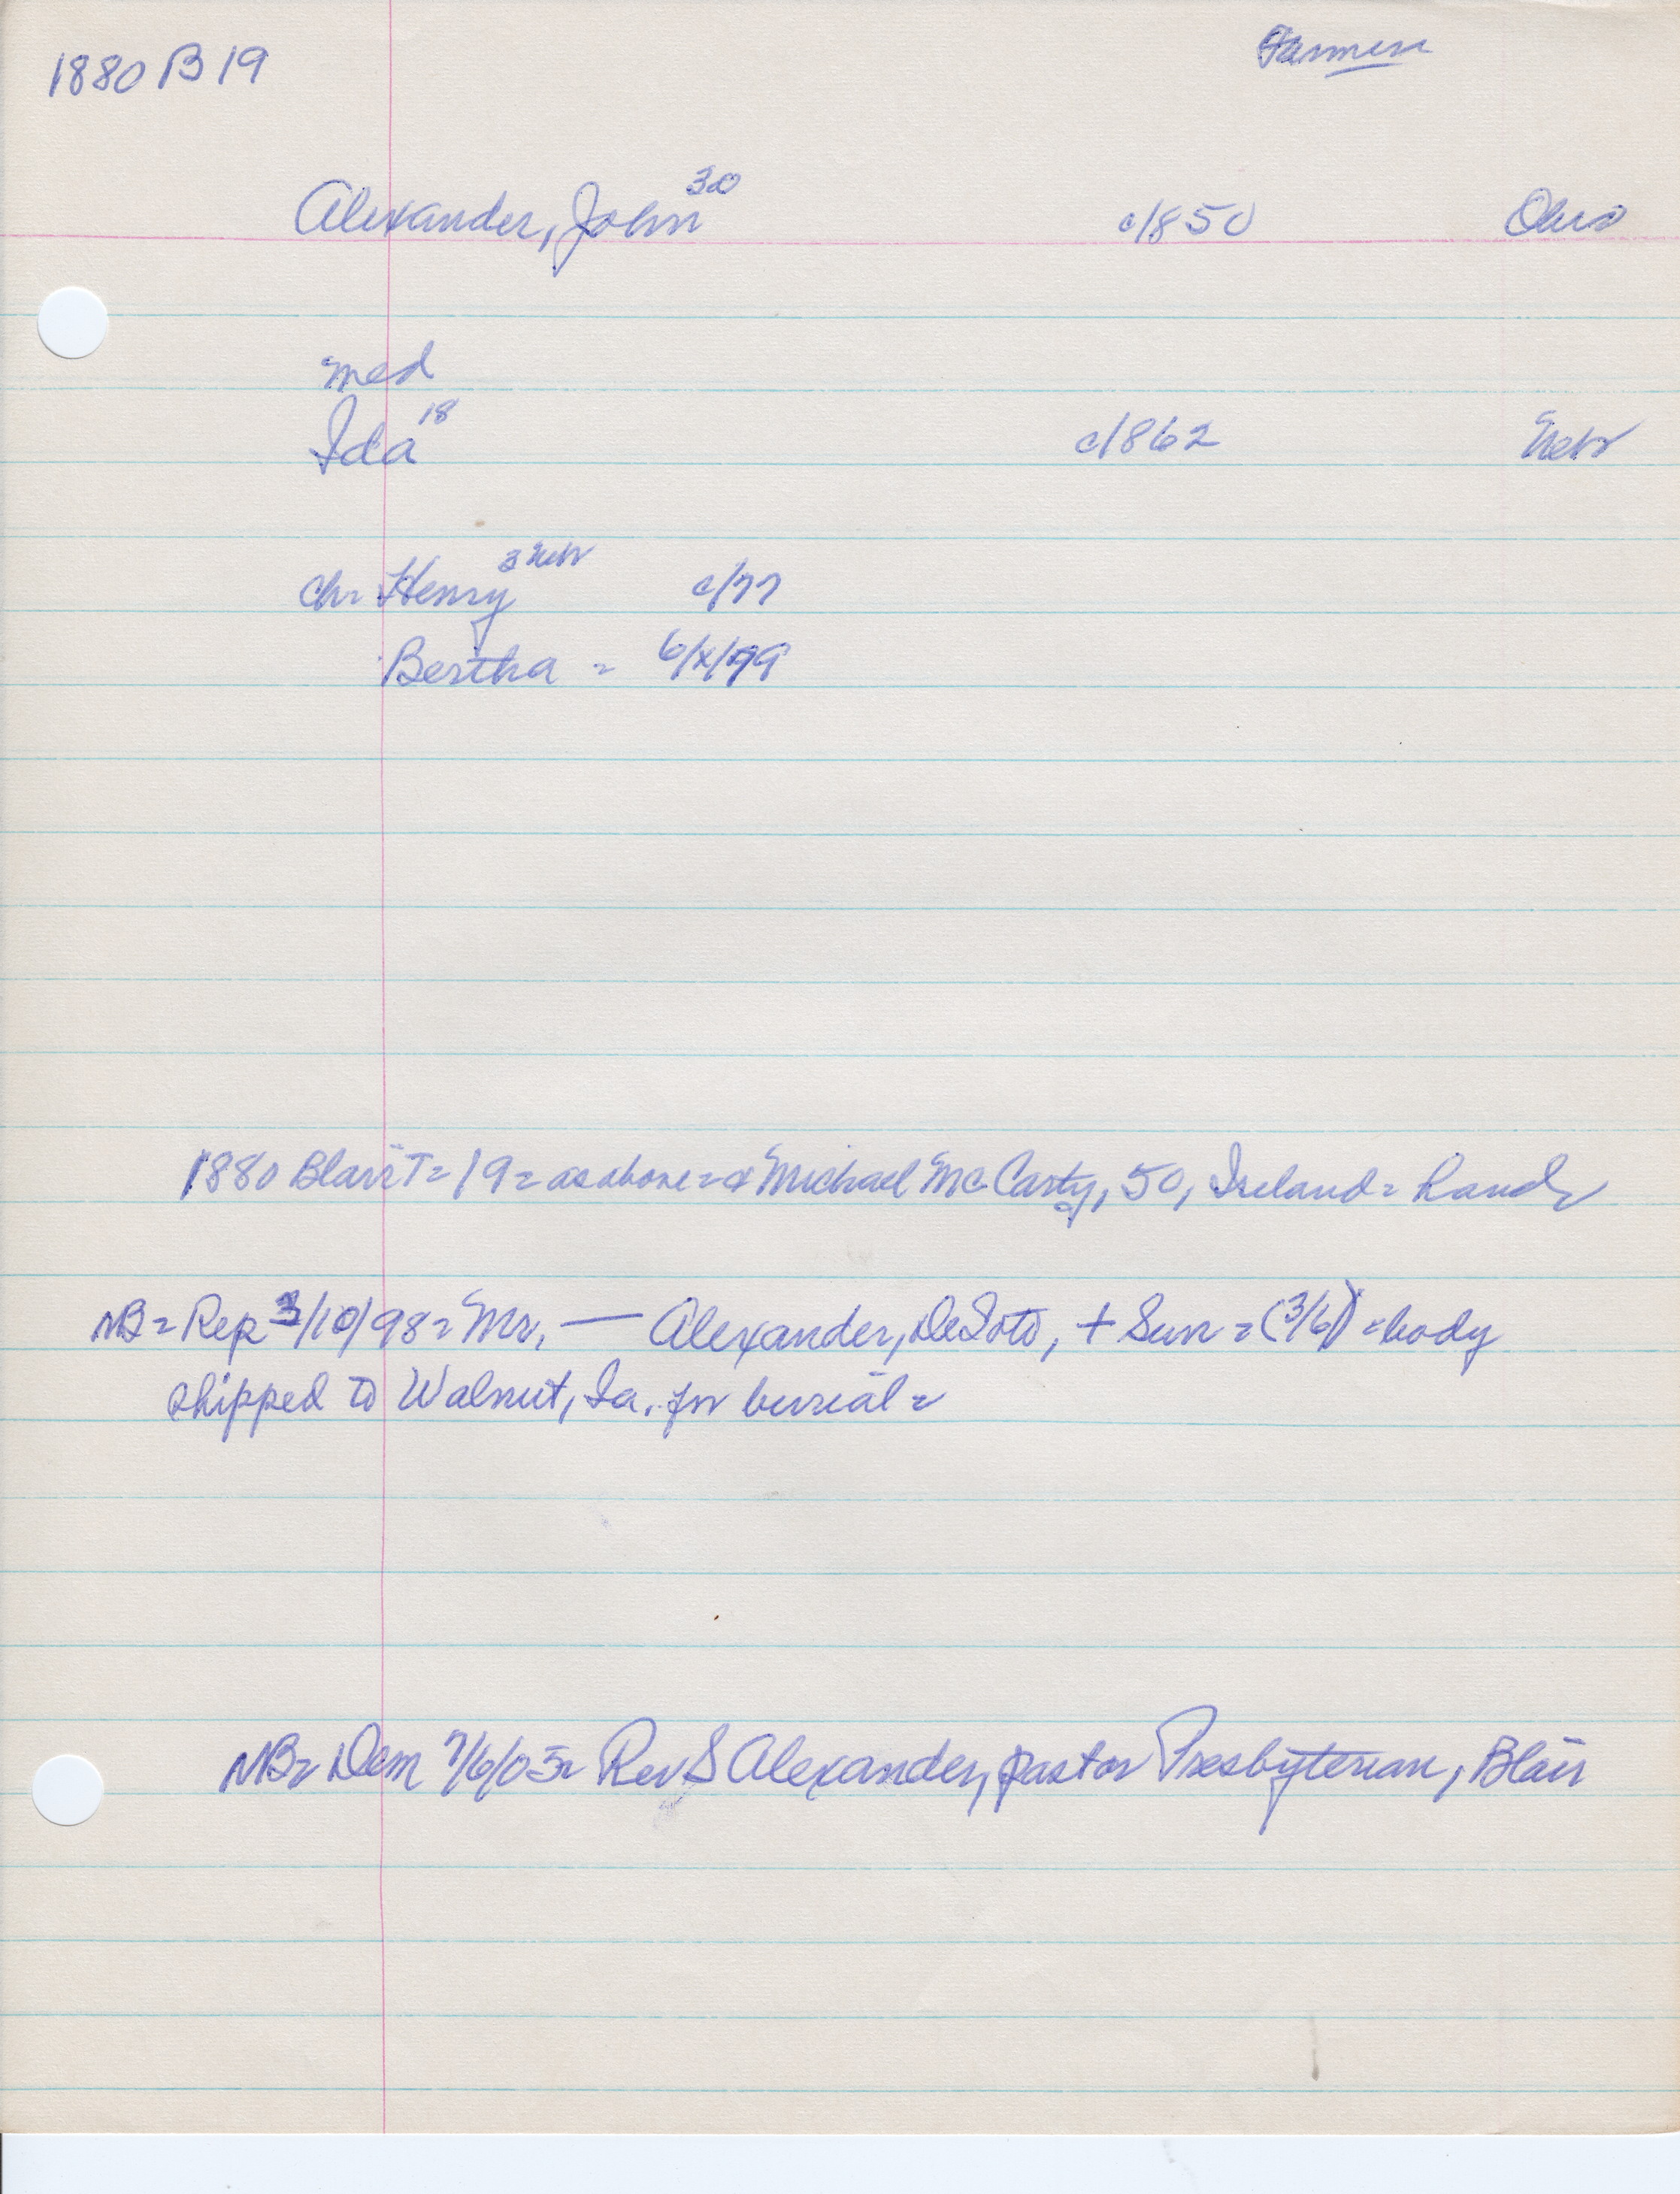 1880 B 19
Farmer
Alexander, John 30 c/850 Ohio
med
Ida 18 c/862 Nebr
ch= Henry 3 Nebr c/77
Bertha = 6/x/79
1880 Blair T = 19 = as above = & Michael McCarty, 50, Ireland = hand
NB = Rep 3/10/98 = Mr. — Alexander, DeSoto, + Sun = (3/6) = body
shipped to Walnut, Ia. for burial =
NB = Dem 7/6/05 = Rev S Alexander, pastor Presbyterian, Blair